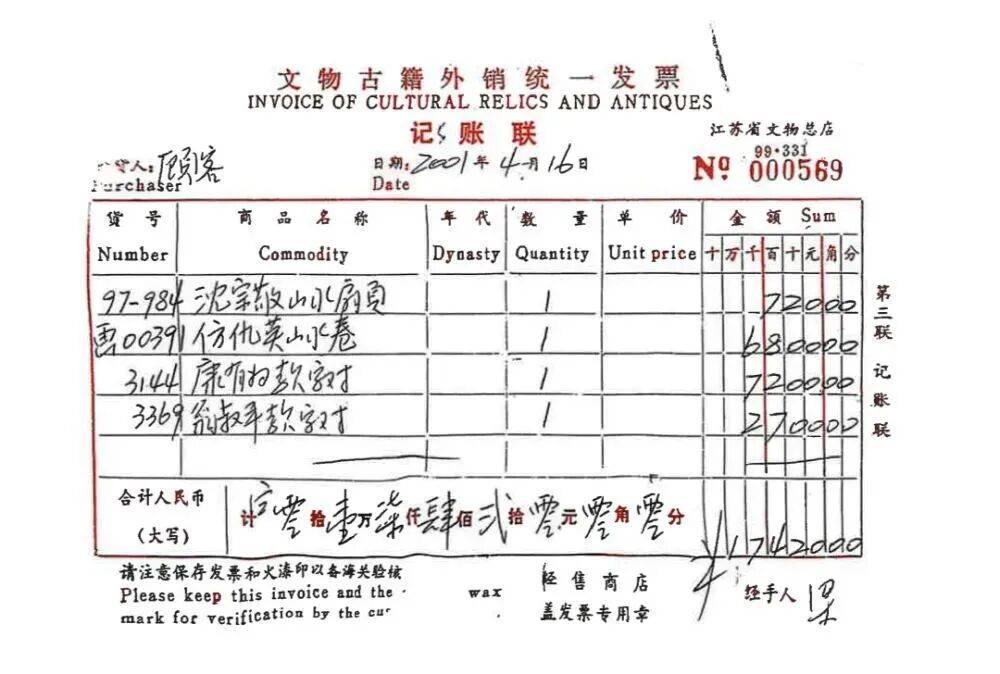 文物古籍外销统一发票
INVOICE OF CULTURAL RELICS AND ANTIQUES
记账联
江苏省文物总店
99·331
货人：顾客 日期：2001年4月16日 Nº 000569
Purchaser Date
货号 商品名称 年代 数量 单价 金额 Sum
Number Commodity Dynasty Quantity Unit price 十万千百十元角分
97-984 沈宗敬山水扇页 1 72000
画00391 仿仇英山水卷 1 680000
3144 康有为款字对 1 720000
3369 翁叔平款字对 1 270000
第三联 记账联
合计人民币
(大写) 计 零拾壹万柒仟肆佰弍拾零元零角零分 ¥1742000
请注意保存发票和火漆印以备海关验核 经售商店 经手人
Please keep this invoice and the wax
mark for verification by the 盖发票专用章